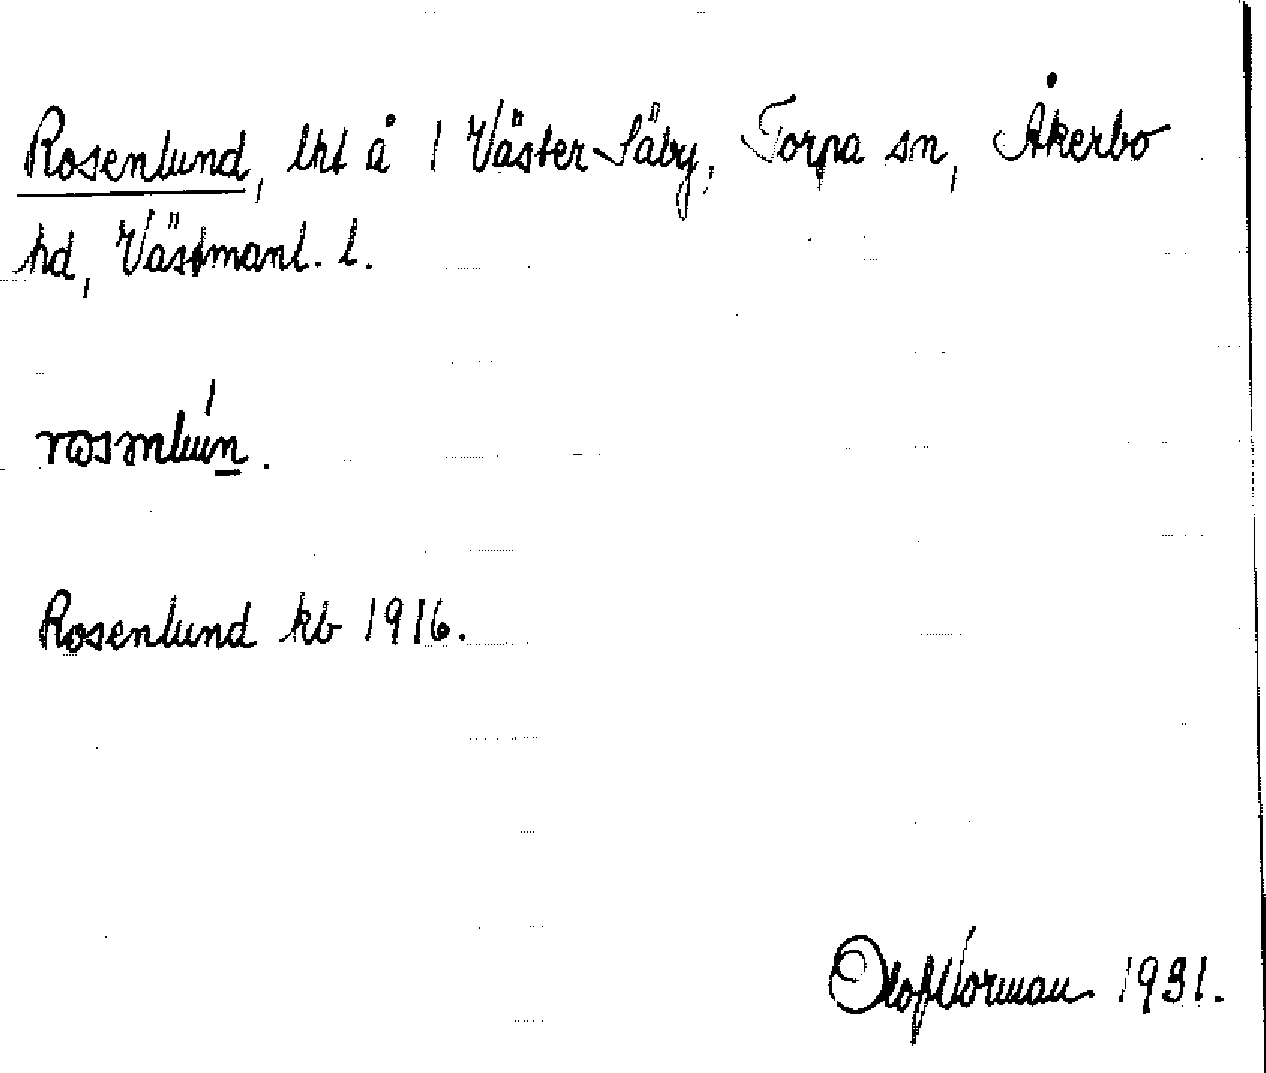 Rosenlund, lht å 1 Väster-Säby, Torpa sn, Åkerbo
hd, Västmanl. l.
Rosenlund kb 1916.
Olof Norman 1931.